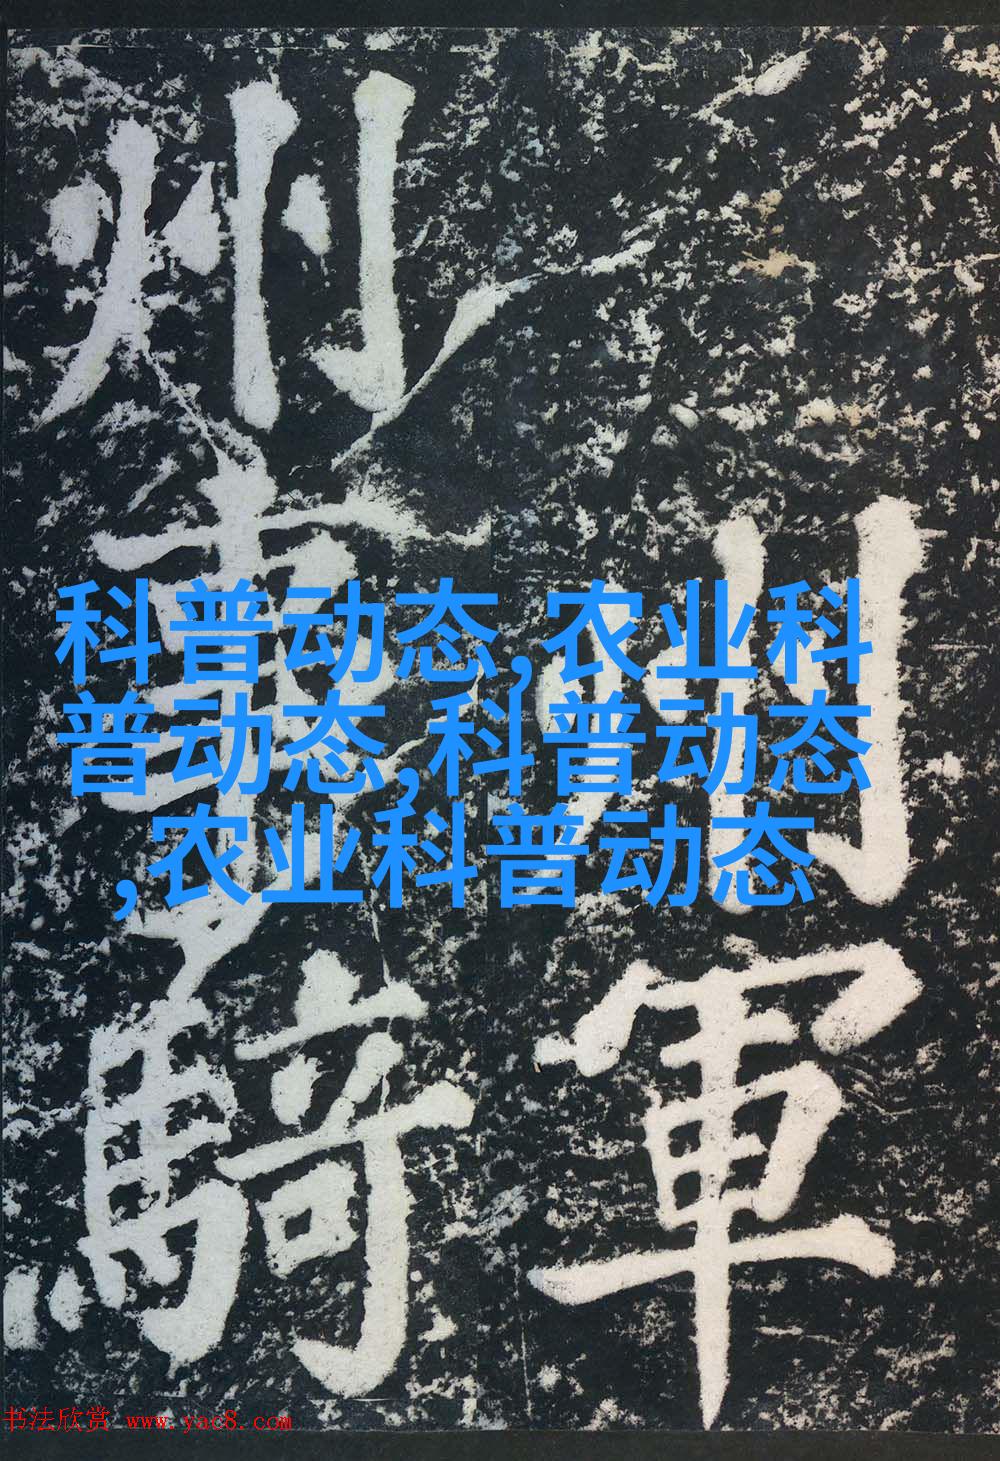 州軍
州事騎
科普动态,农业科
普动态,科普动态
,农业科普动态
书法欣赏 www.yac8.com